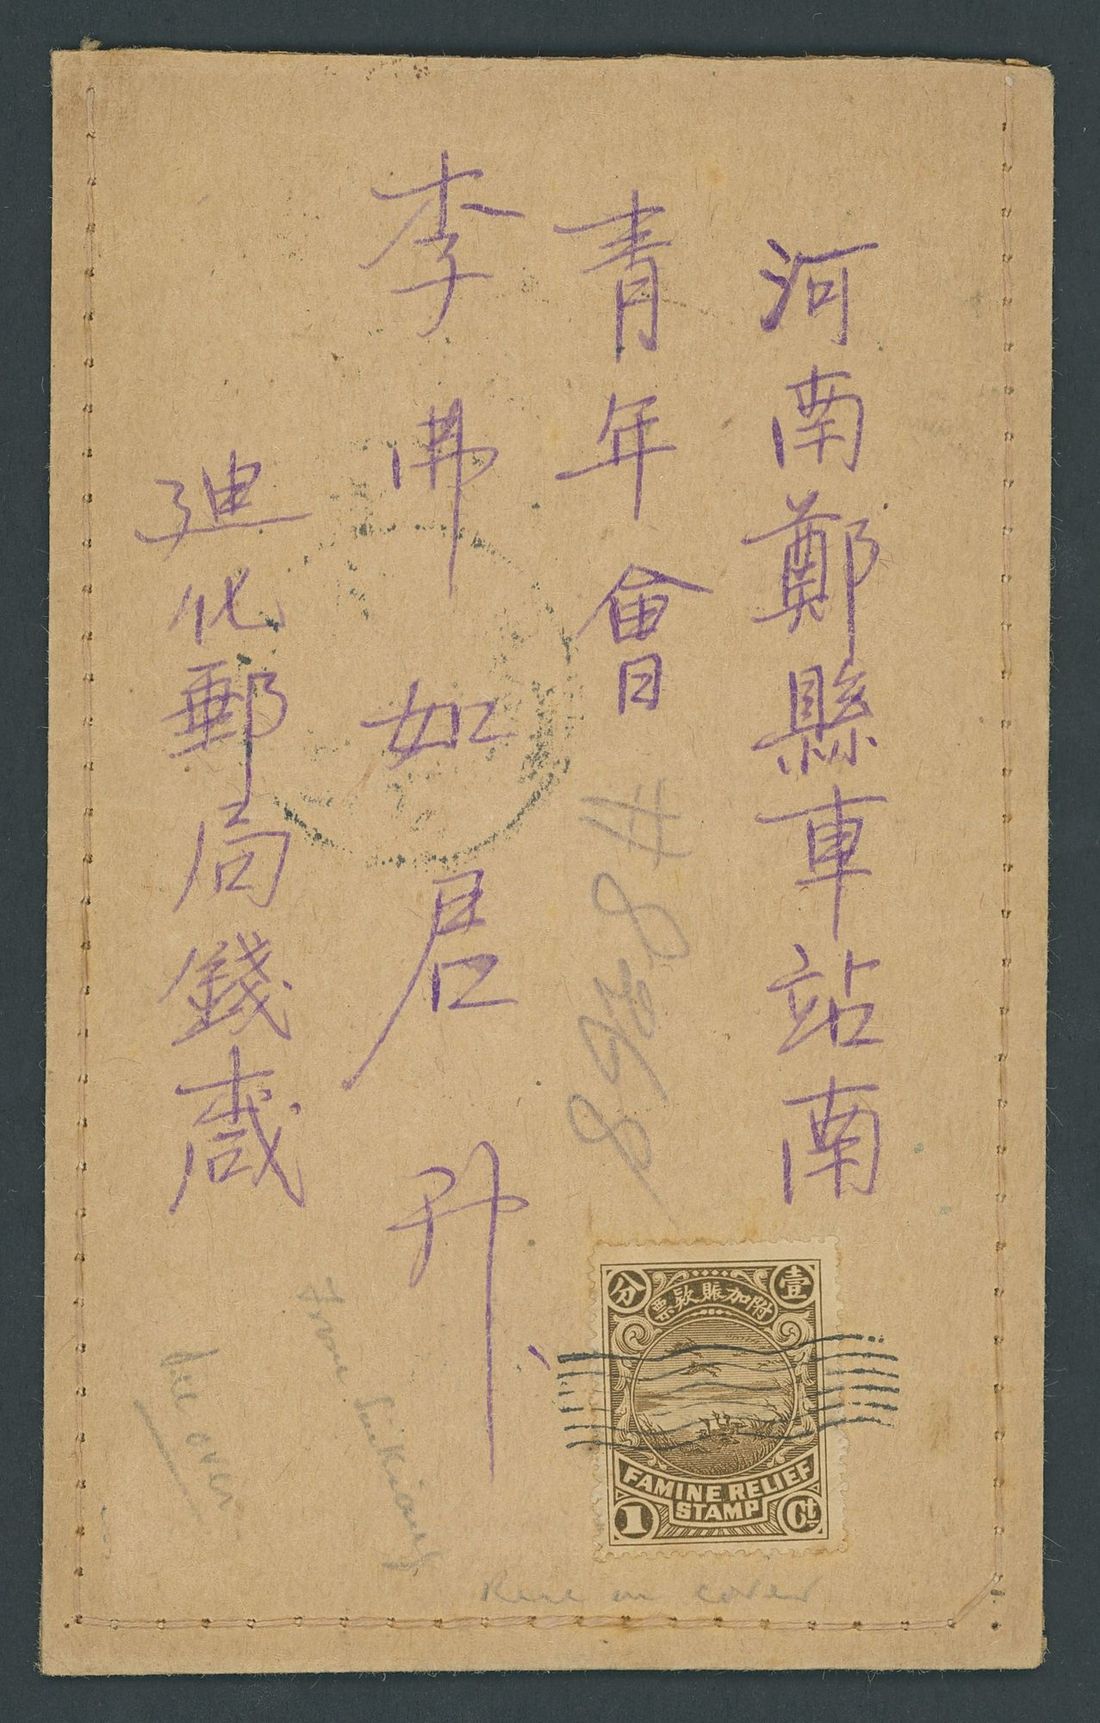 河南鄭縣車站南
青年會
李弗如君升
迪化郵局錢
壹分
附加賑款票
FAMINE RELIEF
STAMP
1 Ct
From Sinkiang
see over
Rare on cover